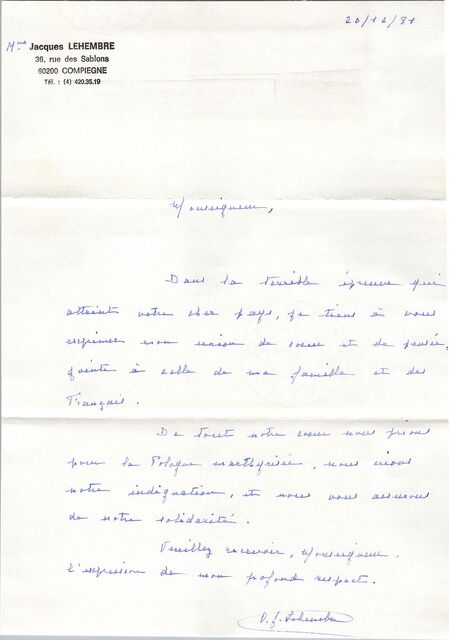 20/12/81
Mme Jacques LEHEMBRE
36, rue des Sablons
60200 COMPIEGNE
Tél. : (4) 420.35.19
Monseigneur,
Dans la terrible épreuve qui
atteint votre cher pays, je tiens à vous
exprimer mon union de coeur et de pensée,
jointe à celle de ma famille et des
Français.
De tout notre coeur nous prions
pour la Pologne martyrisée, nous crions
notre indignation, et nous vous assurons
de notre solidarité.
Veuillez recevoir, Monseigneur,
l'expression de mon profond respect.
Lehembre